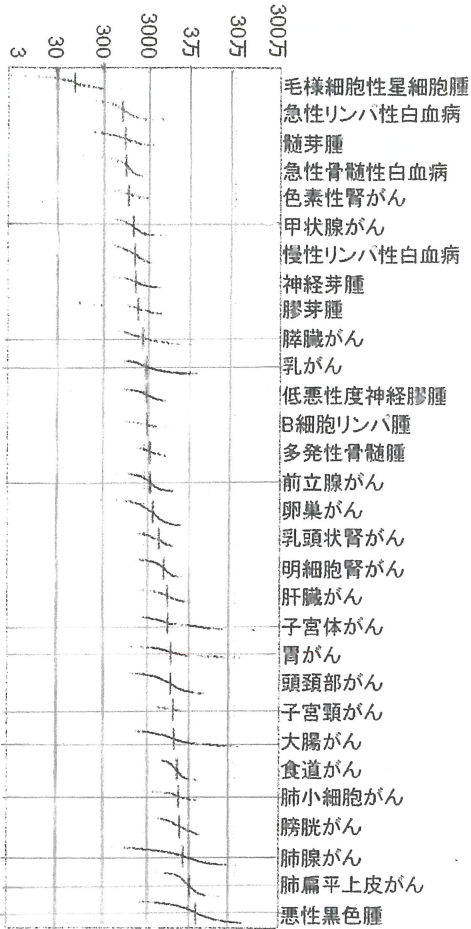 3
30
300
3000
3万
30万
300万
毛様細胞性星細胞腫
急性リンパ性白血病
髄芽腫
急性骨髄性白血病
色素性腎がん
甲状腺がん
慢性リンパ性白血病
神経芽腫
膠芽腫
膵臓がん
乳がん
低悪性度神経膠腫
B細胞リンパ腫
多発性骨髄腫
前立腺がん
卵巣がん
乳頭状腎がん
明細胞腎がん
肝臓がん
子宮体がん
胃がん
頭頚部がん
子宮頸がん
大腸がん
食道がん
肺小細胞がん
膀胱がん
肺腺がん
肺扁平上皮がん
悪性黒色腫